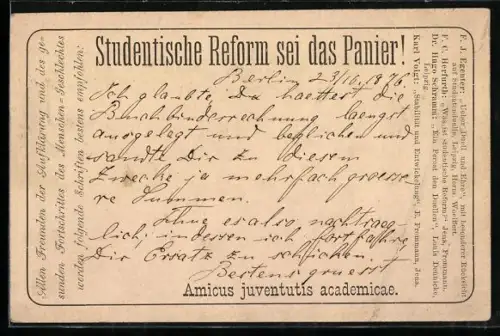 Studentische Reform sei das Panier!
Berlin 23/10. 1896.
Ich glaubte, Du haettest die
Buchbinderrechnung laengst
ausgelegt und beglichen und
sandte Dir zu diesem
Zwecke ja mehrfach groesse-
re Summen.
Thue es also nachtraeg-
lich, indessen ich fortfahre
Dir Ersatz zu schicken.
Bestens gruesst
Amicus juventutis academicae.
Allen Freunden der Aufklärung und des ge-
sunden Fortschrittes des Menschen-Geschlechtes
werden folgende Schriften bestens empfohlen:
F. J. Egenter: „Ueber Duell und Ehre“, mit besonderer Rücksicht
auf Studentenduelle, Leipzig,
F. C. Herfurth: „Was ist studentische Reform?“ Jena, Frommann.
Dr. Hugo Schramm: „Ein Pereat den Duellen“, Louis
Leipzig.
Karl Voigt: „Stabilität und Entwickelung“, E. Frommann, Jena.